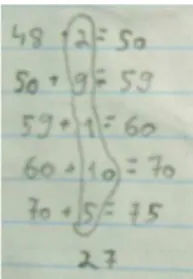 48 + 2 = 50
50 + 9 = 59
59 + 1 = 60
60 + 10 = 70
70 + 5 = 75
27